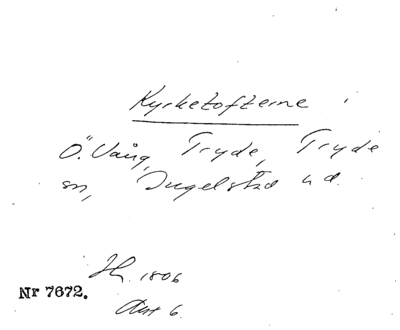 Kyrketofterne i
Ö. Vång, Tryde, Tryde
sn, Ingelstad hd.
1806
Nr 7672.
Akt 6.